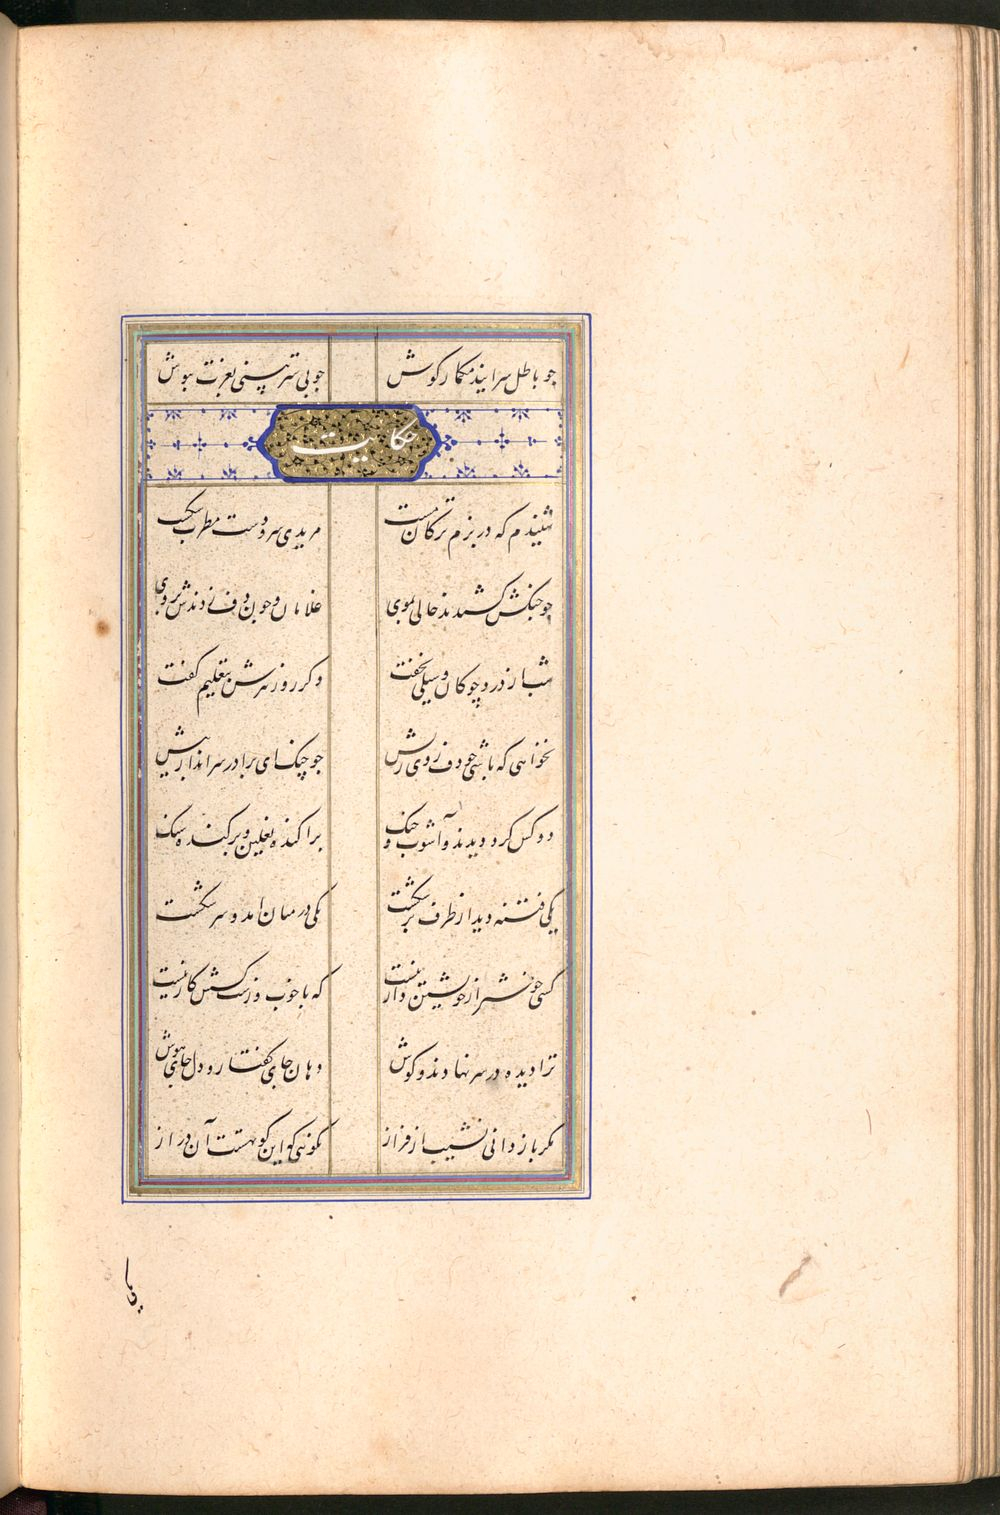 چو باطل سرایند مکمار کوش
چو بی ستر بینی بعزت بپوش
حکایت
شنیدم که در بزم ترکان مست
مریدی سر و دست مطرب شکست
چو چنکش کشیدند حالی بموی
غلامان و چون دف زدندش بروی
شب از درد چوکان و سیلی نخفت
دکر روز پیرش بتعلیم کفت
نخواهی که باشی چو دف روی ریش
چو چنک ای برادر سرانداز پیش
دو کس کرد دیدند و آشوب و جنک
پراکنده نعلین و برکنده سنک
یکی فتنه دید از طرف برشکست
یکی در میان امد و سر شکست
کسی خوشتر از خویشتن دار نیست
که با خوب و زشت کسش کار نیست
ترا دیده در سر نهادند و کوش
دهان جای کفتار و دل جای هوش
مکر باز دانی نشیب از فراز
نکویی که این کوتهست آن دراز